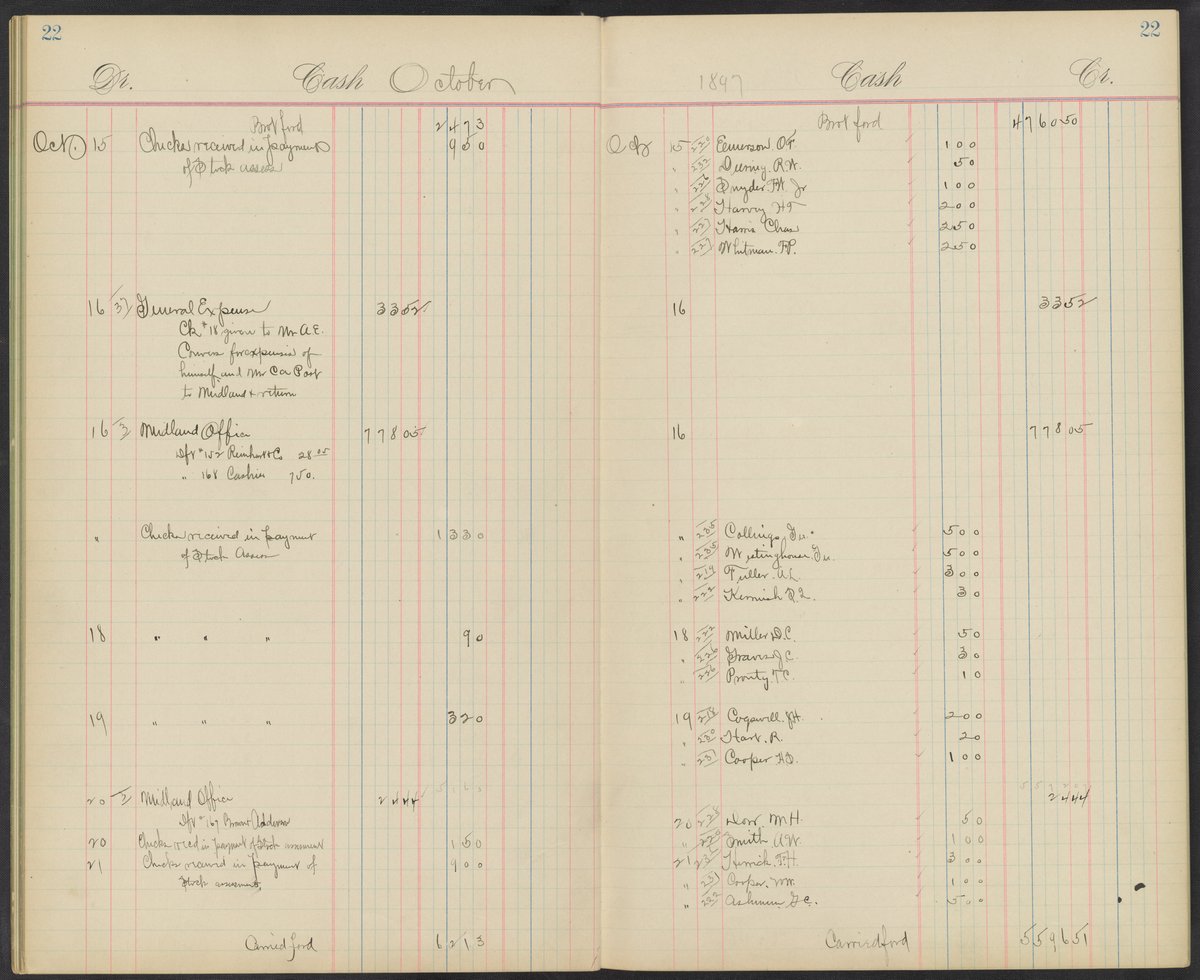 22
Dr. Cash October
Brot ford 2473
Oct. 15 Checks received in payment 950
of Stock assess
16 37 General Expense 3352
Ck # 18 given to Mr A.E.
Convers for expenses of
himself and Mr Ca Post
to Midland & return
16 3 Midland Office 77805
Dft # 152 Reinhart & Co 28 05
" 168 Cashier 750.
" Checks received in payment 1330
of Stock Assess
18 " " " 90
19 " " " 320
5163
20 3 Midland Office 2444
Dft # 167 Brown Addison
20 Checks recd in payment of Stock assessment 150
21 Checks received in payment of 900
Stock assessment,
Carried ford 6213
22
1897 Cash Cr.
Brot ford 476050
Oct 15 220 Emerson O.F. 100
" 232 Deering R.W. 50
" 226 Snyder F.W. Jr 100
" 228 Harvey H F 200
" 227 Harris Chas 250
" 227 Whitman F.P. 250
16 3352
16 77805
" 235 Collings, Gu. 500
" 235 Westinghouse Gu. 500
" 219 Fuller A.L. 300
" 222 Kermish P.L. 30
18 222 Miller D.C. 50
" 226 Graves J.C. 30
" 236 Prouty T.C. 10
19 218 Cogswell J.H. 200
" 230 Hart R. 20
" 231 Cooper H.D. 100
2444
20 228 Dow M.H. 50
" 220 Smith A.W. 100
21 Herrick F.H. 300
" 231 Cooper. W.W. 100
" 232 Ashmun G.C. 500
Carried ford 559651